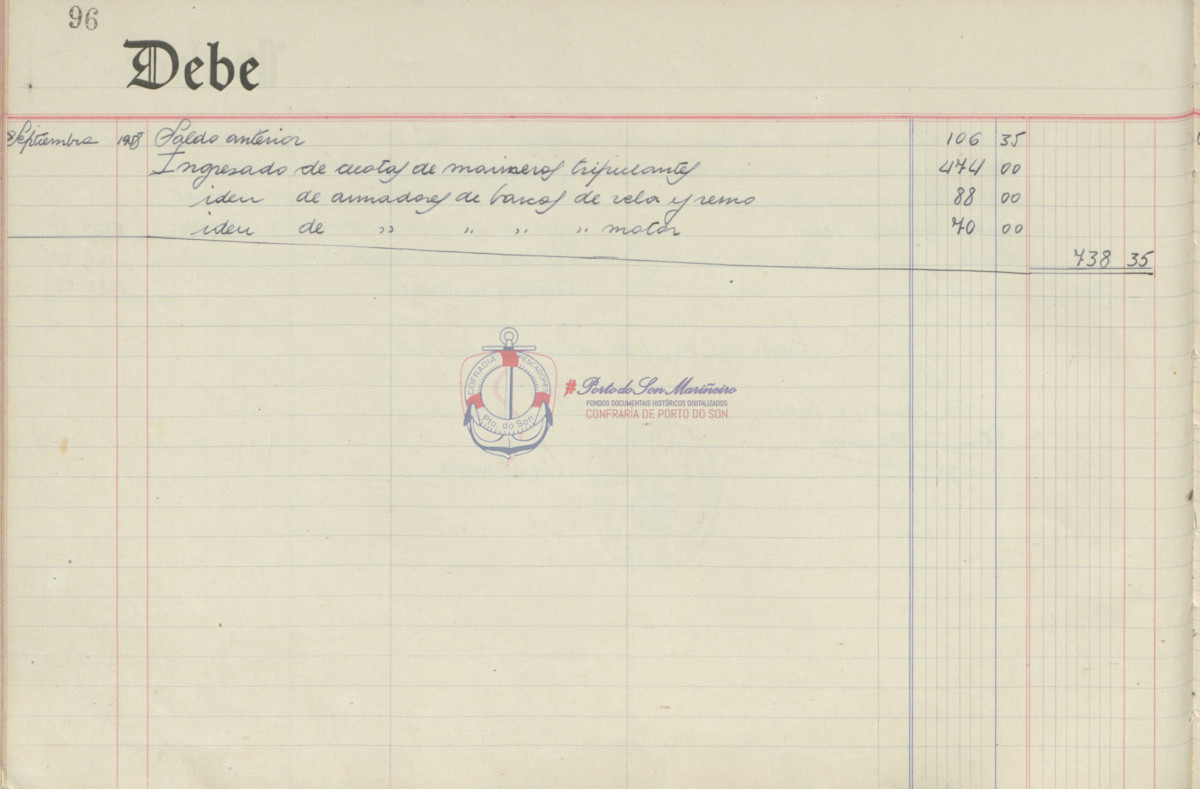 96
Debe
Septiembre 1958 Saldo anterior 106 35
Ingresado de cuotas de marineros tripulantes 474 00
idem de armadores de barcos de vela y remo 88 00
idem de " " " " motor 70 00
738 35
COFRADIA PESCADORES
Pto. do Son
#Porto do Son Mariñeiro
FONDOS DOCUMENTAIS HISTÓRICOS DIXITALIZADOS
CONFRARIA DE PORTO DO SON